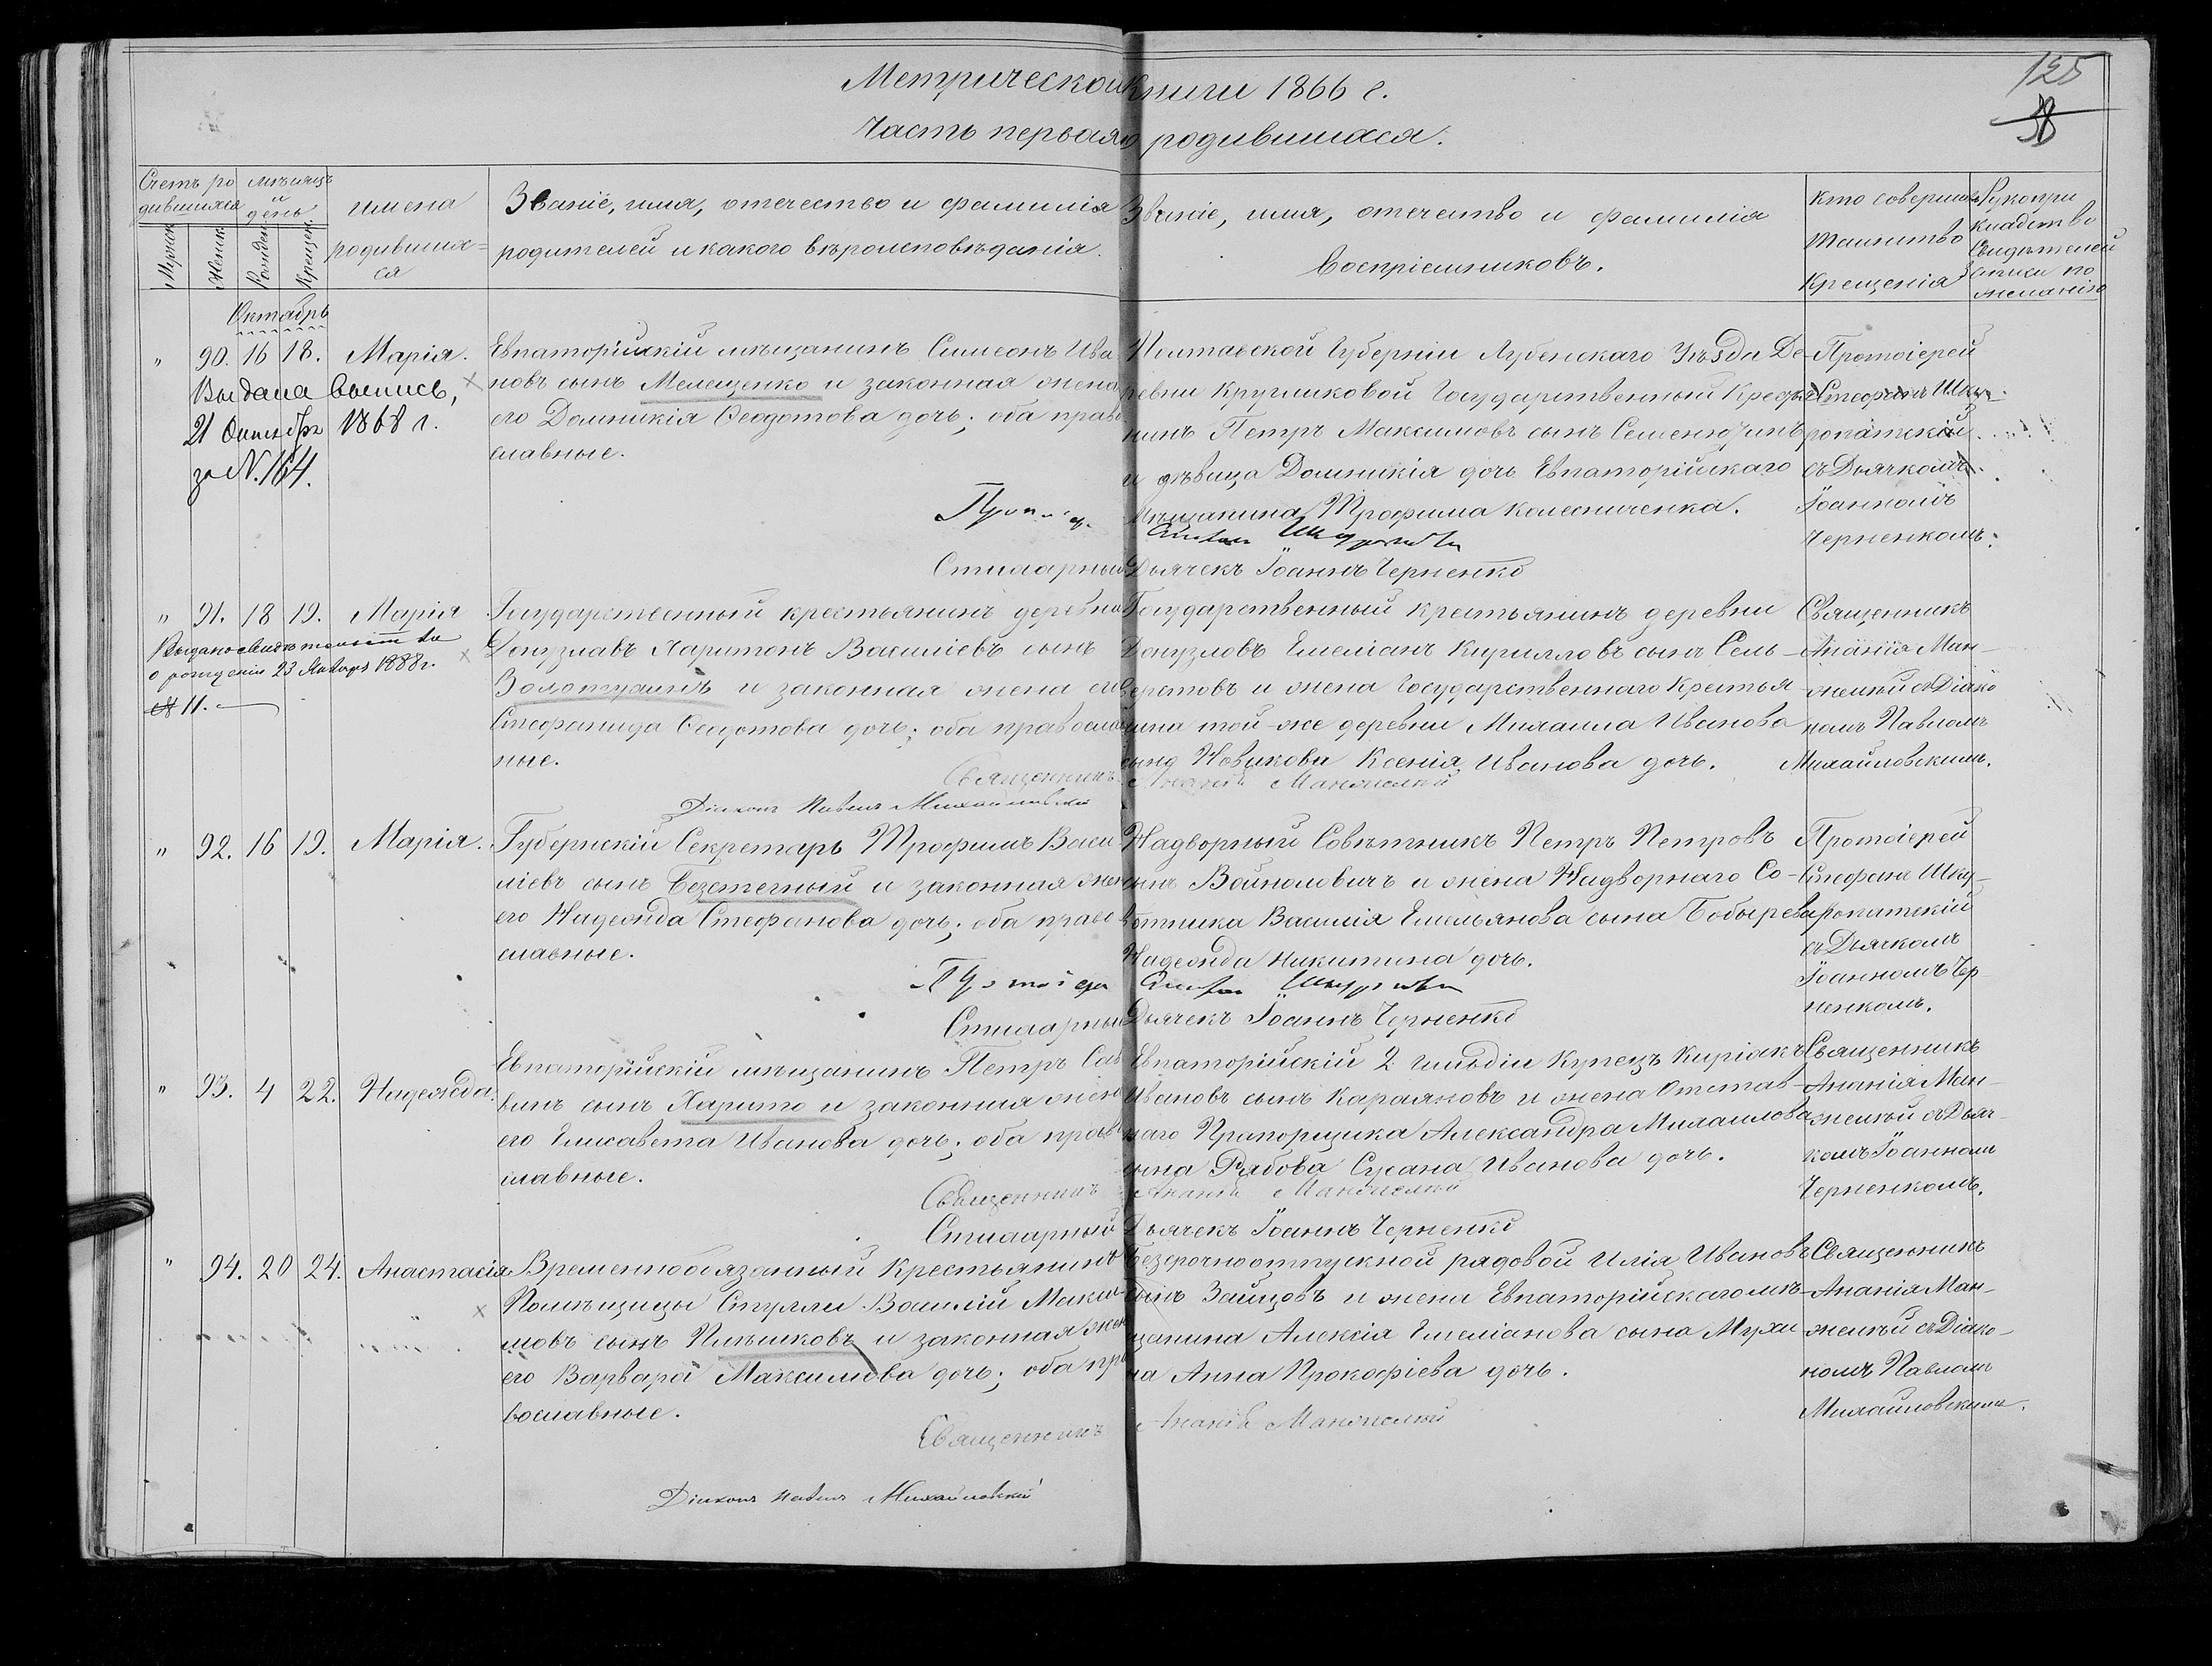 125
38
Метрической книги 1866 г.
Часть первая о родившихся.
Счетъ ро
дившихся
мѣсяцъ
и
день
имена
родивших=
ся
Званіе, имя, отечество и фамилія
родителей и какого вѣроисповѣданія.
Званіе, имя, отечество и фамилія
Воспріемниковъ.
Кто совершалъ
таинство
Крещенія
Рукопри
кладство
Свидѣтелей
записи по
желанію
Мужск.
Женск.
Рожден.
Крещен.
Октябрь
" 90. 16 18. Марія.
Выдана выпись,
21 Октября 1868 г.
за N. 164.
Евпаторійскій мѣщанинъ Симеонъ Ива
новъ сынъ Мелещенко и законная жена
его Домникія Ѳеодотова дочь; оба право
славные.
Полтавской Губерніи Лубенскаго Уѣзда Де-
ревни Кругликовой Государственный Крестья
нинъ Петръ Максимовъ сынъ Семенютинъ
и дѣвица Домникія дочь Евпаторійскаго
Мѣщанина Трофима Колесниченка.
Протоіерей
Стефанъ Шку-
ропатскій
съ Дьячкомъ
Іоанномъ
Черненкомъ.
Стихарный Дьячекъ Іоаннъ Черненко
" 91. 18 19. Марія
Выдано свидѣтельство
о рожденіи 23 Января 1888 г.
№ 11.
Государственный крестьянинъ деревни
Донузлавъ Харитонъ Василіевъ сынъ
Золотухинъ и законная жена его
Стефанида Ѳеодотова дочь; оба православ
ные.
Государственный крестьянинъ деревни
Донузловъ Емеліанъ Кирилловъ сынъ Сель-
верстовъ и жена Государственнаго Крестья
нина той-же деревни Михаила Иванова
сына Новикова Ксенія Иванова дочь.
Священникъ
Ананія Ман-
желѣй съ Діако
номъ Павломъ
Михайловскимъ.
Священникъ Ананія
Діаконъ Павелъ Михайловскій
" 92. 16 19. Марія.
Губернскій Секретарь Трофимъ Васи
ліевъ сынъ Безстечный и законная жена
его Надежда Стефанова дочь; оба право
славные.
Надворный Совѣтникъ Петръ Петровъ
сынъ Войноловичъ и жена Надворнаго Со-
вѣтника Василія Емельянова сына Бобырева
Надежда Никитина дочь.
Протоіерей
Стефанъ Шку-
ропатскій
съ Дьячкомъ
Іоанномъ Чер
ненкомъ.
Протоіерей Стефанъ Шкуропатскій
Стихарный Дьячекъ Іоаннъ Черненко
" 93. 4 22. Надежда.
Евпаторійскій мѣщанинъ Петръ Сав
винъ сынъ Харито и законная жена
его Елисавета Иванова дочь; оба право
славные.
Евпаторійскій 2 гильдіи Купецъ Киріакъ
Ивановъ сынъ Караяновъ и жена Отстав-
наго Прапорщика Александра Михаилова
сына Рябова Сусана Иванова дочь.
Священникъ
Ананія Ман-
желѣй съ Дьяч-
комъ Іоанномъ
Черненкомъ.
Священникъ Ананія
Стихарный Дьячекъ Іоаннъ Черненко
" 94. 20 24. Анастасія
Временнообязанный Крестьянинъ
Помѣщицы Стулли Василій Макси
мовъ сынъ Плѣшковъ и законная жена
его Варвара Максимова дочь; оба пра
вославные.
Безсрочноотпускной рядовой Илія Ивановъ
сынъ Зайцовъ и жена Евпаторійскаго мѣ-
щанина Алексія Емеліанова сына Мухи
на Анна Прокофіева дочь.
Священникъ
Ананія Ман-
желѣй съ Діако-
номъ Павломъ
Михайловскимъ.
Священникъ Ананія
Діаконъ Павелъ Михайловскій